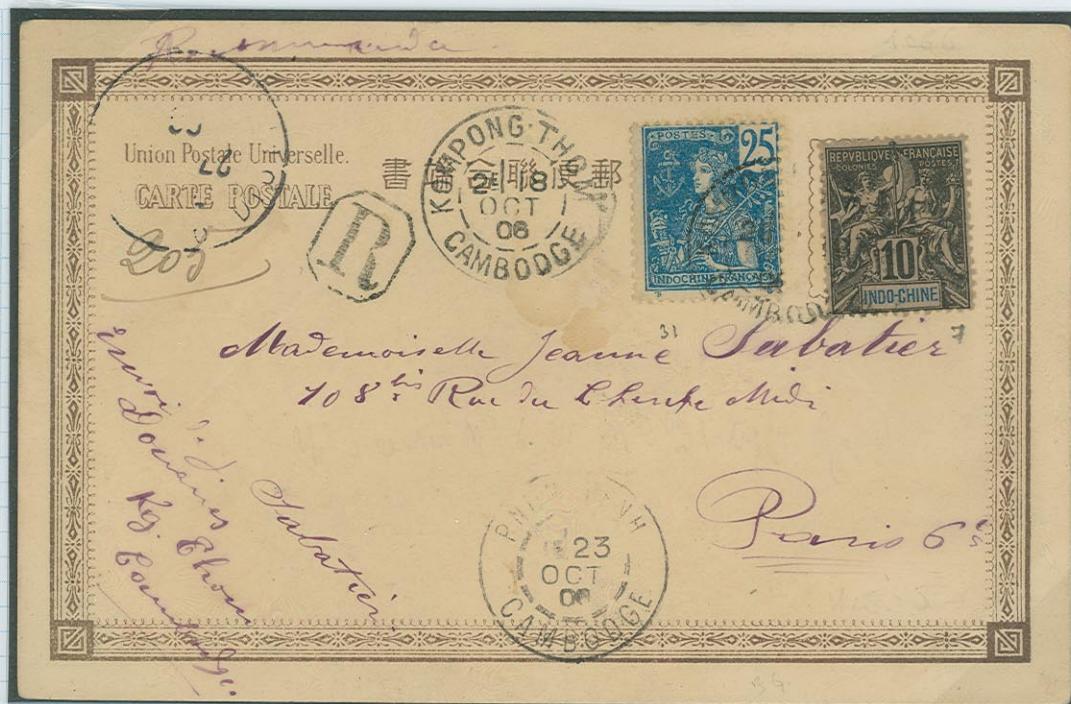 Recommandée
Union Postale Universelle.
CARTE POSTALE
書函合聯便郵
203
R
KOMPONG-THOM
2E 18
OCT
06
CAMBODGE
POSTES
25
INDOCHINE FRANÇAISE
CAMBODGE
REPVBLIQVE FRANÇAISE
COLONIES
POSTES
10
INDO-CHINE
31
7
Mademoiselle Jeanne Sabatier
108 bis Rue du Cherche Midi
Paris 6e
Envoi de J. Sabatier
Douanes
Kg. Thom
Cambodge
23
OCT
06
CAMBODGE